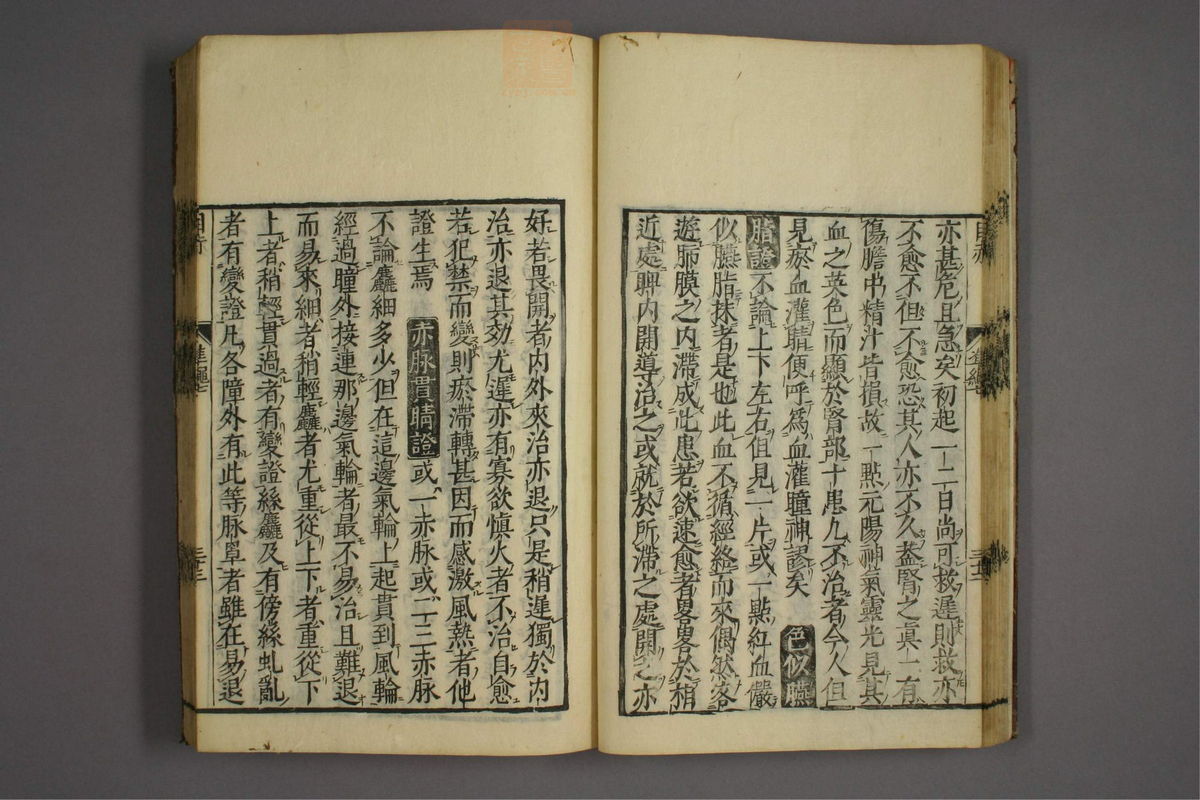 亦甚危且急矣初起一二日尚可救遲則救亦
不愈不但不愈恐其人亦不久蓋腎之眞一有
傷膽中精汁皆損故一點元陽神氣靈光見其
血之英色而顯於腎部十患九不治者今人但
見瘀血灌睛便呼爲血灌瞳神謬矣 色似臙
脂證 不論上下左右但見一片或一點紅血嚴
似臙脂抹者是也此血不循經絡而來偶然客
遊肺膜之内滯成此患若欲速愈者畧畧於相
近處睥内開導治之或就於所滯之處開之亦
好若畏開者内外來治亦退只是稍遲獨於内
治亦退其効尤遲亦有寡欲愼火者不治自愈
若犯禁而變則瘀滯轉甚因而感激風熱者他
證生焉 赤脉貫睛證 或一赤脉或二三赤脉
不論麤細多少但在這邊氣輪上起貫到風輪
經過瞳外接連那邊氣輪者最不易治且難退
而易來細者稍輕麤者尤重從上下者重從下
上者稍輕貫過者有變證絲麤及有傍絲虬亂
者有變證凡各障外有此等脉罩者雖在易退